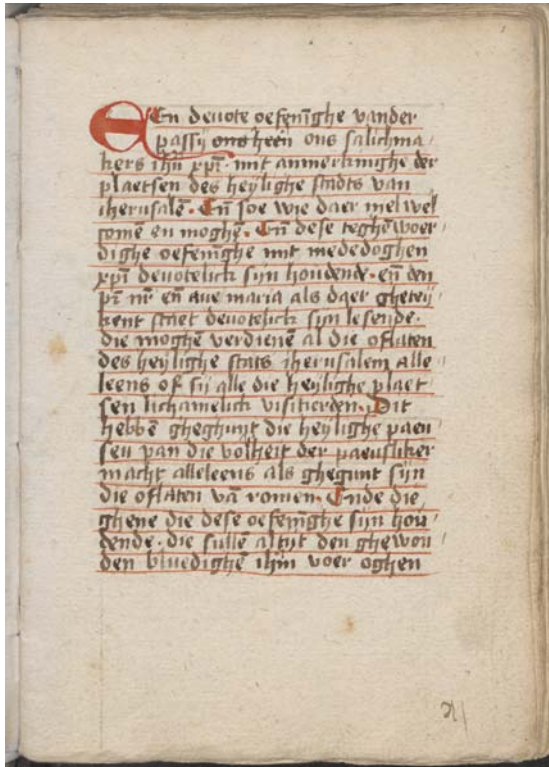 EEn deuote oefenīghe vander
passij ons heen̄ ons salichma
kers ihū xpī · mit anmerkinghe der
plaetsen des heylighe stadts van
iherusalē · En̄ soe wie daer niel wel
gomē en moghe · En̄ dese teghēwoer
dighe oefenīghe mit mededoghen
xpī deuotelick sijn houdende · en̄ den
pr̄ nr̄ en̄ aue maria als daer ghetey
kent staet deuotelick sijn lesende ·
die moghe verdienē al die oflaten
des heylighe stats iherusalem alle
leens of sij alle die heylighe plaet
sen lichamelick visitierden · Dit
hebbē gheghunt die heylighe paeu
sen van die volheit der paeuslicker
macht alleleens als ghegunt sijn
die oflaten vā romen · Ende die
ghene die dese oefenīghe sijn hou
dende · die sullē altyt den ghewon
den bluedighē ihm̄ voer oghen